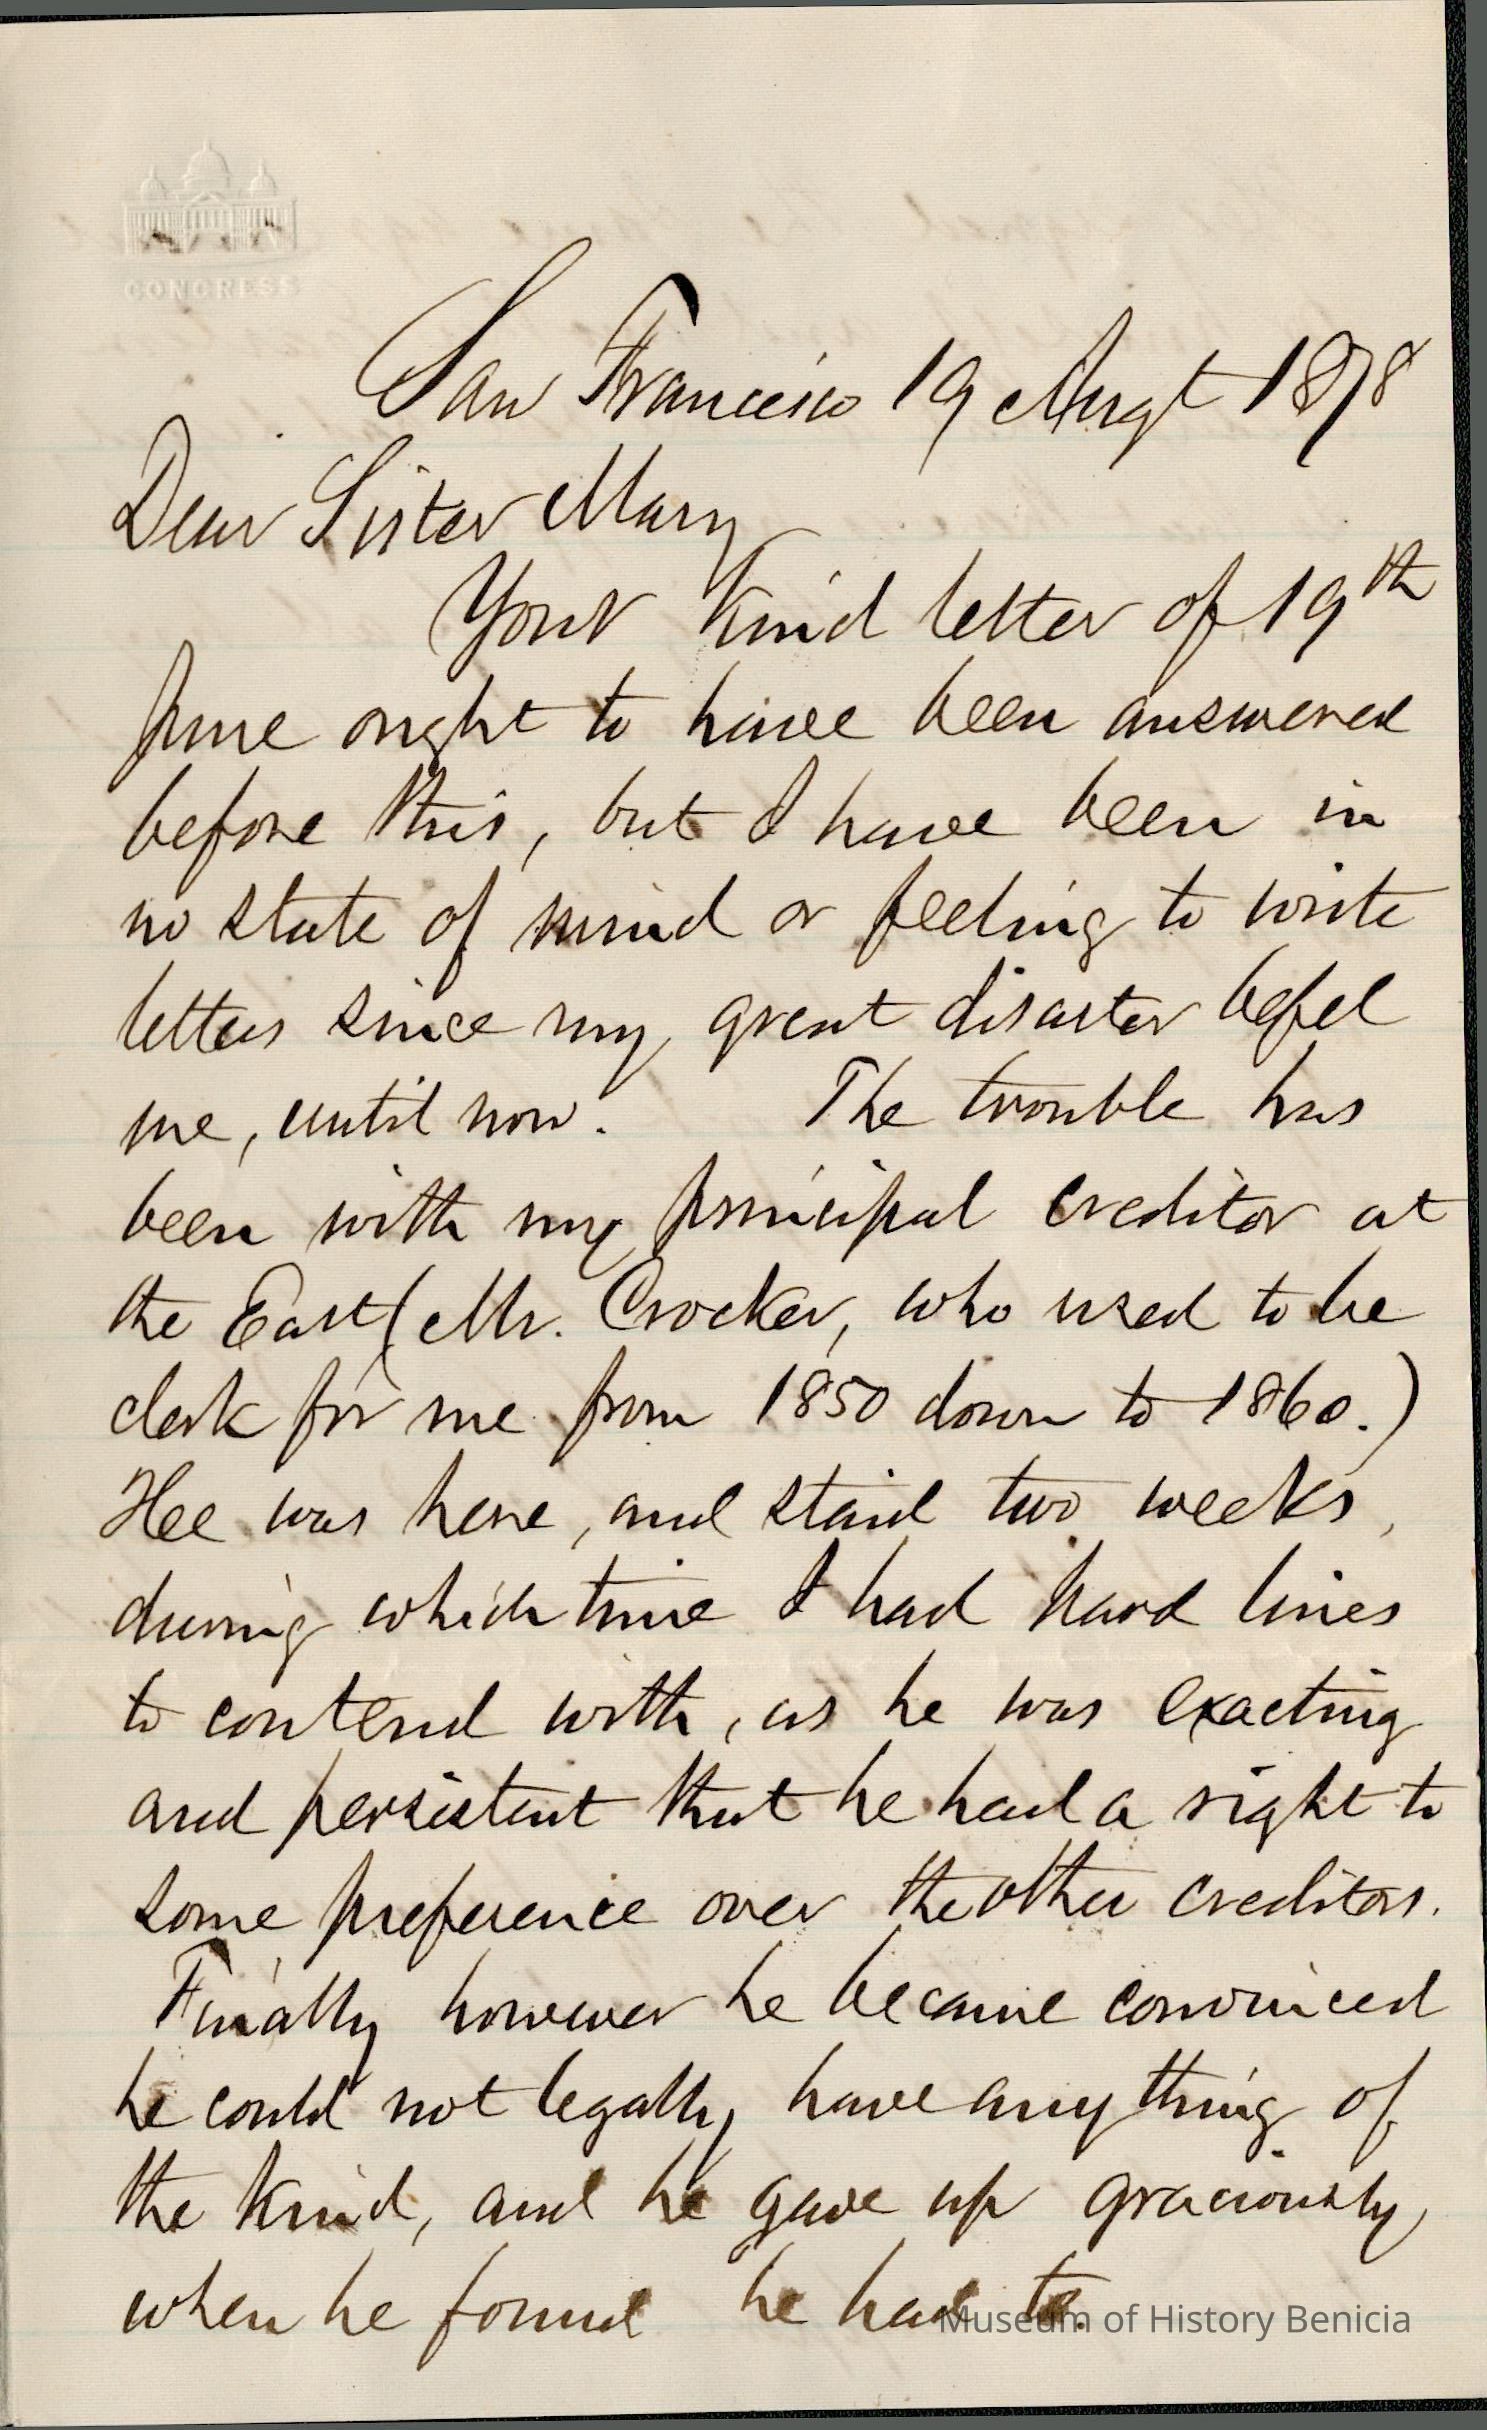 CONGRESS
San Francisco 19 Augt 1878
Dear Sister Mary
Your kind letter of 19th
June ought to have been answered
before this, but I have been in
no state of mind or feeling to write
letters since my great disaster befel
me, until now. The trouble has
been with my principal creditor at
the East (Mr. Crocker, who used to be
clerk for me from 1850 down to 1860.)
Hee was here, and staid two weeks,
during which time I had hard lines
to contend with, as he was exacting
and persistent that he had a right to
some preference over the other creditors.
Finally however he became convinced
he could not legally have any thing of
the kind, and he gave up graciously
when he found he had to.
Museum of History Benicia